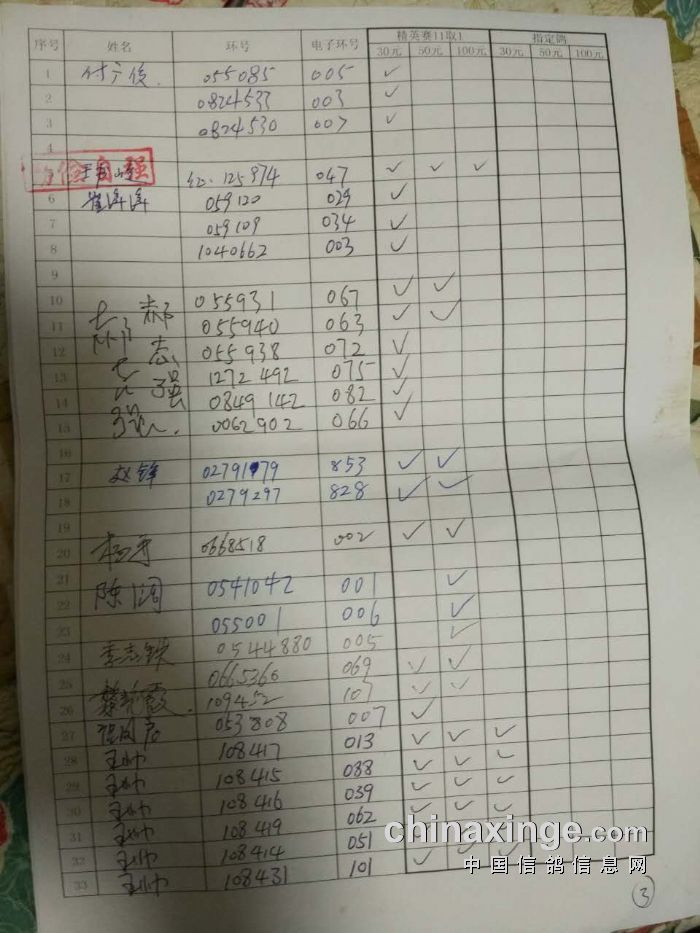 精英赛11取1 指定鸽
序号 姓名 环号 电子环号 30元 50元 100元 30元 50元 100元
1 付广俊. 055085 005 ✓
2 0824533 003 ✓
3 0824530 007 ✓
4
自强 125974 047 ✓ ✓ ✓
6 崔海涛 059120 029 ✓
7 059109 034 ✓
8 1040662 003 ✓
9
10 郝 055931 067 ✓ ✓
11 055940 063 ✓ ✓
12 志 055938 072 ✓
13 强 1272492 075 ✓
14 0849142 082 ✓
15 0062902 066 ✓
16
17 赵锋 02791979 853 ✓ ✓
18 0279297 828 ✓ ✓
19
20 0668518 002 ✓ ✓
21
22 陈阔 0541042 001 ✓
23 055001 006 ✓
24 李志铁 0544880 005 ✓
25 0665360 069 ✓ ✓
26 109452 107 ✓ ✓
27 053808 007 ✓
28 王帅 108417 013 ✓ ✓ ✓
29 王帅 108415 038 ✓ ✓ ✓
30 王帅 108416 039 ✓ ✓ ✓
31 王帅 108419 062 ✓ ✓ ✓
32 王帅 108414 051
33 王帅 108431 101 ✓ ✓ ✓
chinaxinge.com
中国信鸽信息网
3